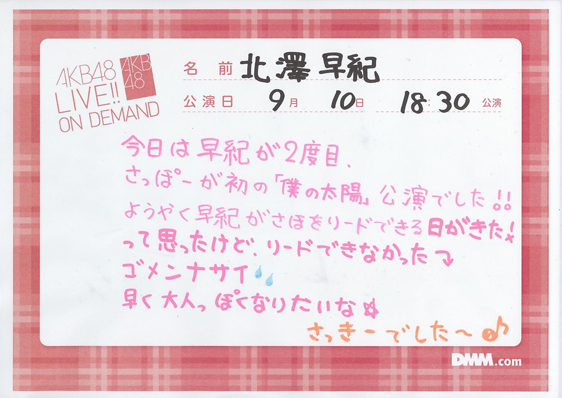 AKB48
LIVE!!
ON DEMAND
AKB
48
名前 北澤早紀
公演日 9月 10日 18:30 公演
今日は早紀が2度目、
さっぽーが初の「僕の太陽」公演でした!!
ようやく早紀がさほをリードできる日がきた!
って思ったけど、リードできなかった⤵
ゴメンナサイ💦
早く大人っぽくなりたいな☆
さっきーでした〜♪
DMM.com